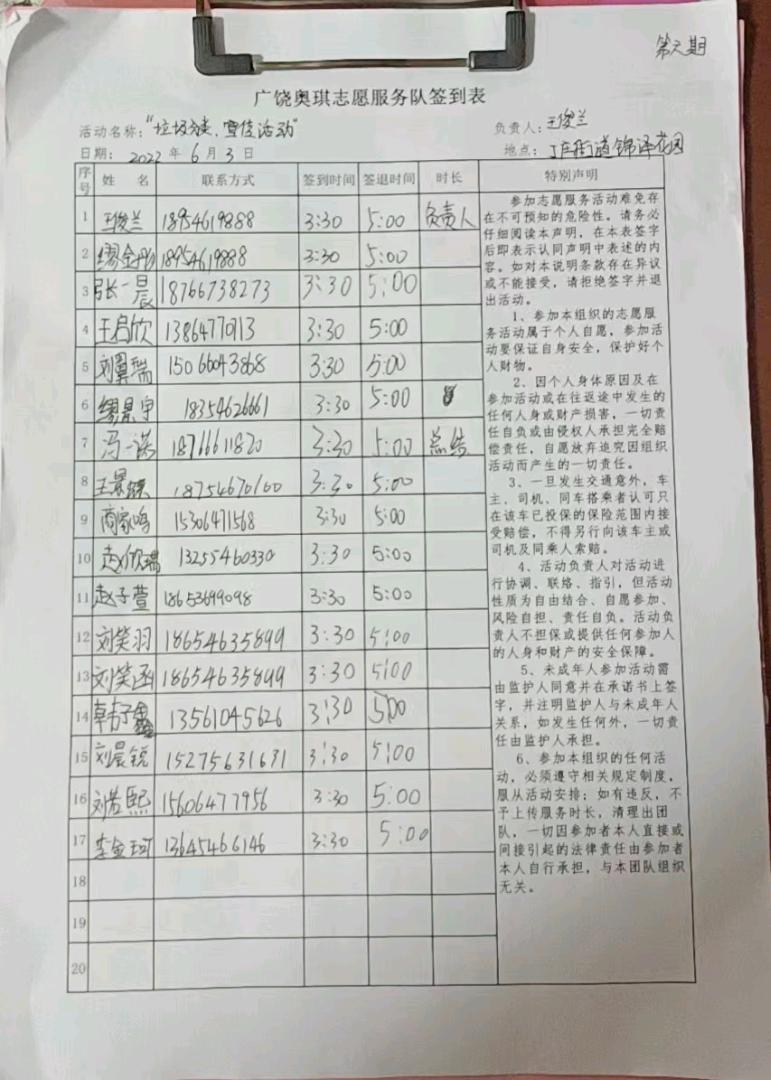 第六期
广饶奥琪志愿服务队签到表
活动名称："垃圾分类、宣传活动"
负责人：王俊兰
日期：2022年6月3日
地点：丁庄街道锦泽花园
序号 姓名 联系方式 签到时间 签退时间 时长 特别声明
1 王俊兰 18954619888 3:30 5:00 负责人
2 缪金彤 18954619888 3:30 5:00
3 张一晨 18766738273 3:30 5:00
4 王启欣 13864770913 3:30 5:00
5 刘冀瑞 15066043868 3:30 5:00
6 缪景宇 18354626661 3:30 5:00
7 冯一诺 18766611820 3:30 5:00 总结
8 王景 18754670160 3:30 5:00
9 商家鸣 15306471568 3:30 5:00
10 赵欣瑞 13255460330 3:30 5:00
11 赵子萱 18653699098 3:30 5:00
12 刘笑羽 18654635899 3:30 5:00
13 刘笑函 18654635899 3:30 5:00
14 韩子鑫 13561045626 3:30 5:00
15 刘晨锐 15275631631 3:30 5:00
16 刘若熙 15606477956 3:30 5:00
17 李金珂 13645466146 3:30 5:00
18
19
20
参加志愿服务活动难免存
在不可预知的危险性。请务必
仔细阅读本声明，在本表签字
后即表示认同声明中表述的内
容。如对本说明条款存在异议
或不能接受，请拒绝签字并退
出活动。
1、参加本组织的志愿服
务活动属于个人自愿，参加活
动要保证自身安全，保护好个
人财物。
2、因个人身体原因及在
参加活动或在往返途中发生的
任何人身或财产损害，一切责
任自负或由侵权人承担完全赔
偿责任，自愿放弃追究因组织
活动而产生的一切责任。
3、一旦发生交通意外，车
主、司机、同车搭乘者认可只
在该车已投保的保险范围内接
受赔偿，不得另行向该车主或
司机及同乘人索赔。
4、活动负责人对活动进
行协调、联络、指引，但活动
性质为自由结合、自愿参加、
风险自担、责任自负。活动负
责人不担保或提供任何参加人
的人身和财产的安全保障。
5、未成年人参加活动需
由监护人同意并在承诺书上签
字，并注明监护人与未成年人
关系，如发生任何外，一切责
任由监护人承担。
6、参加本组织的任何活
动，必须遵守相关规定制度，
服从活动安排；如有违反，不
予上传服务时长，清理出团
队，一切因参加者本人直接或
间接引起的法律责任由参加者
本人自行承担，与本团队组织
无关。